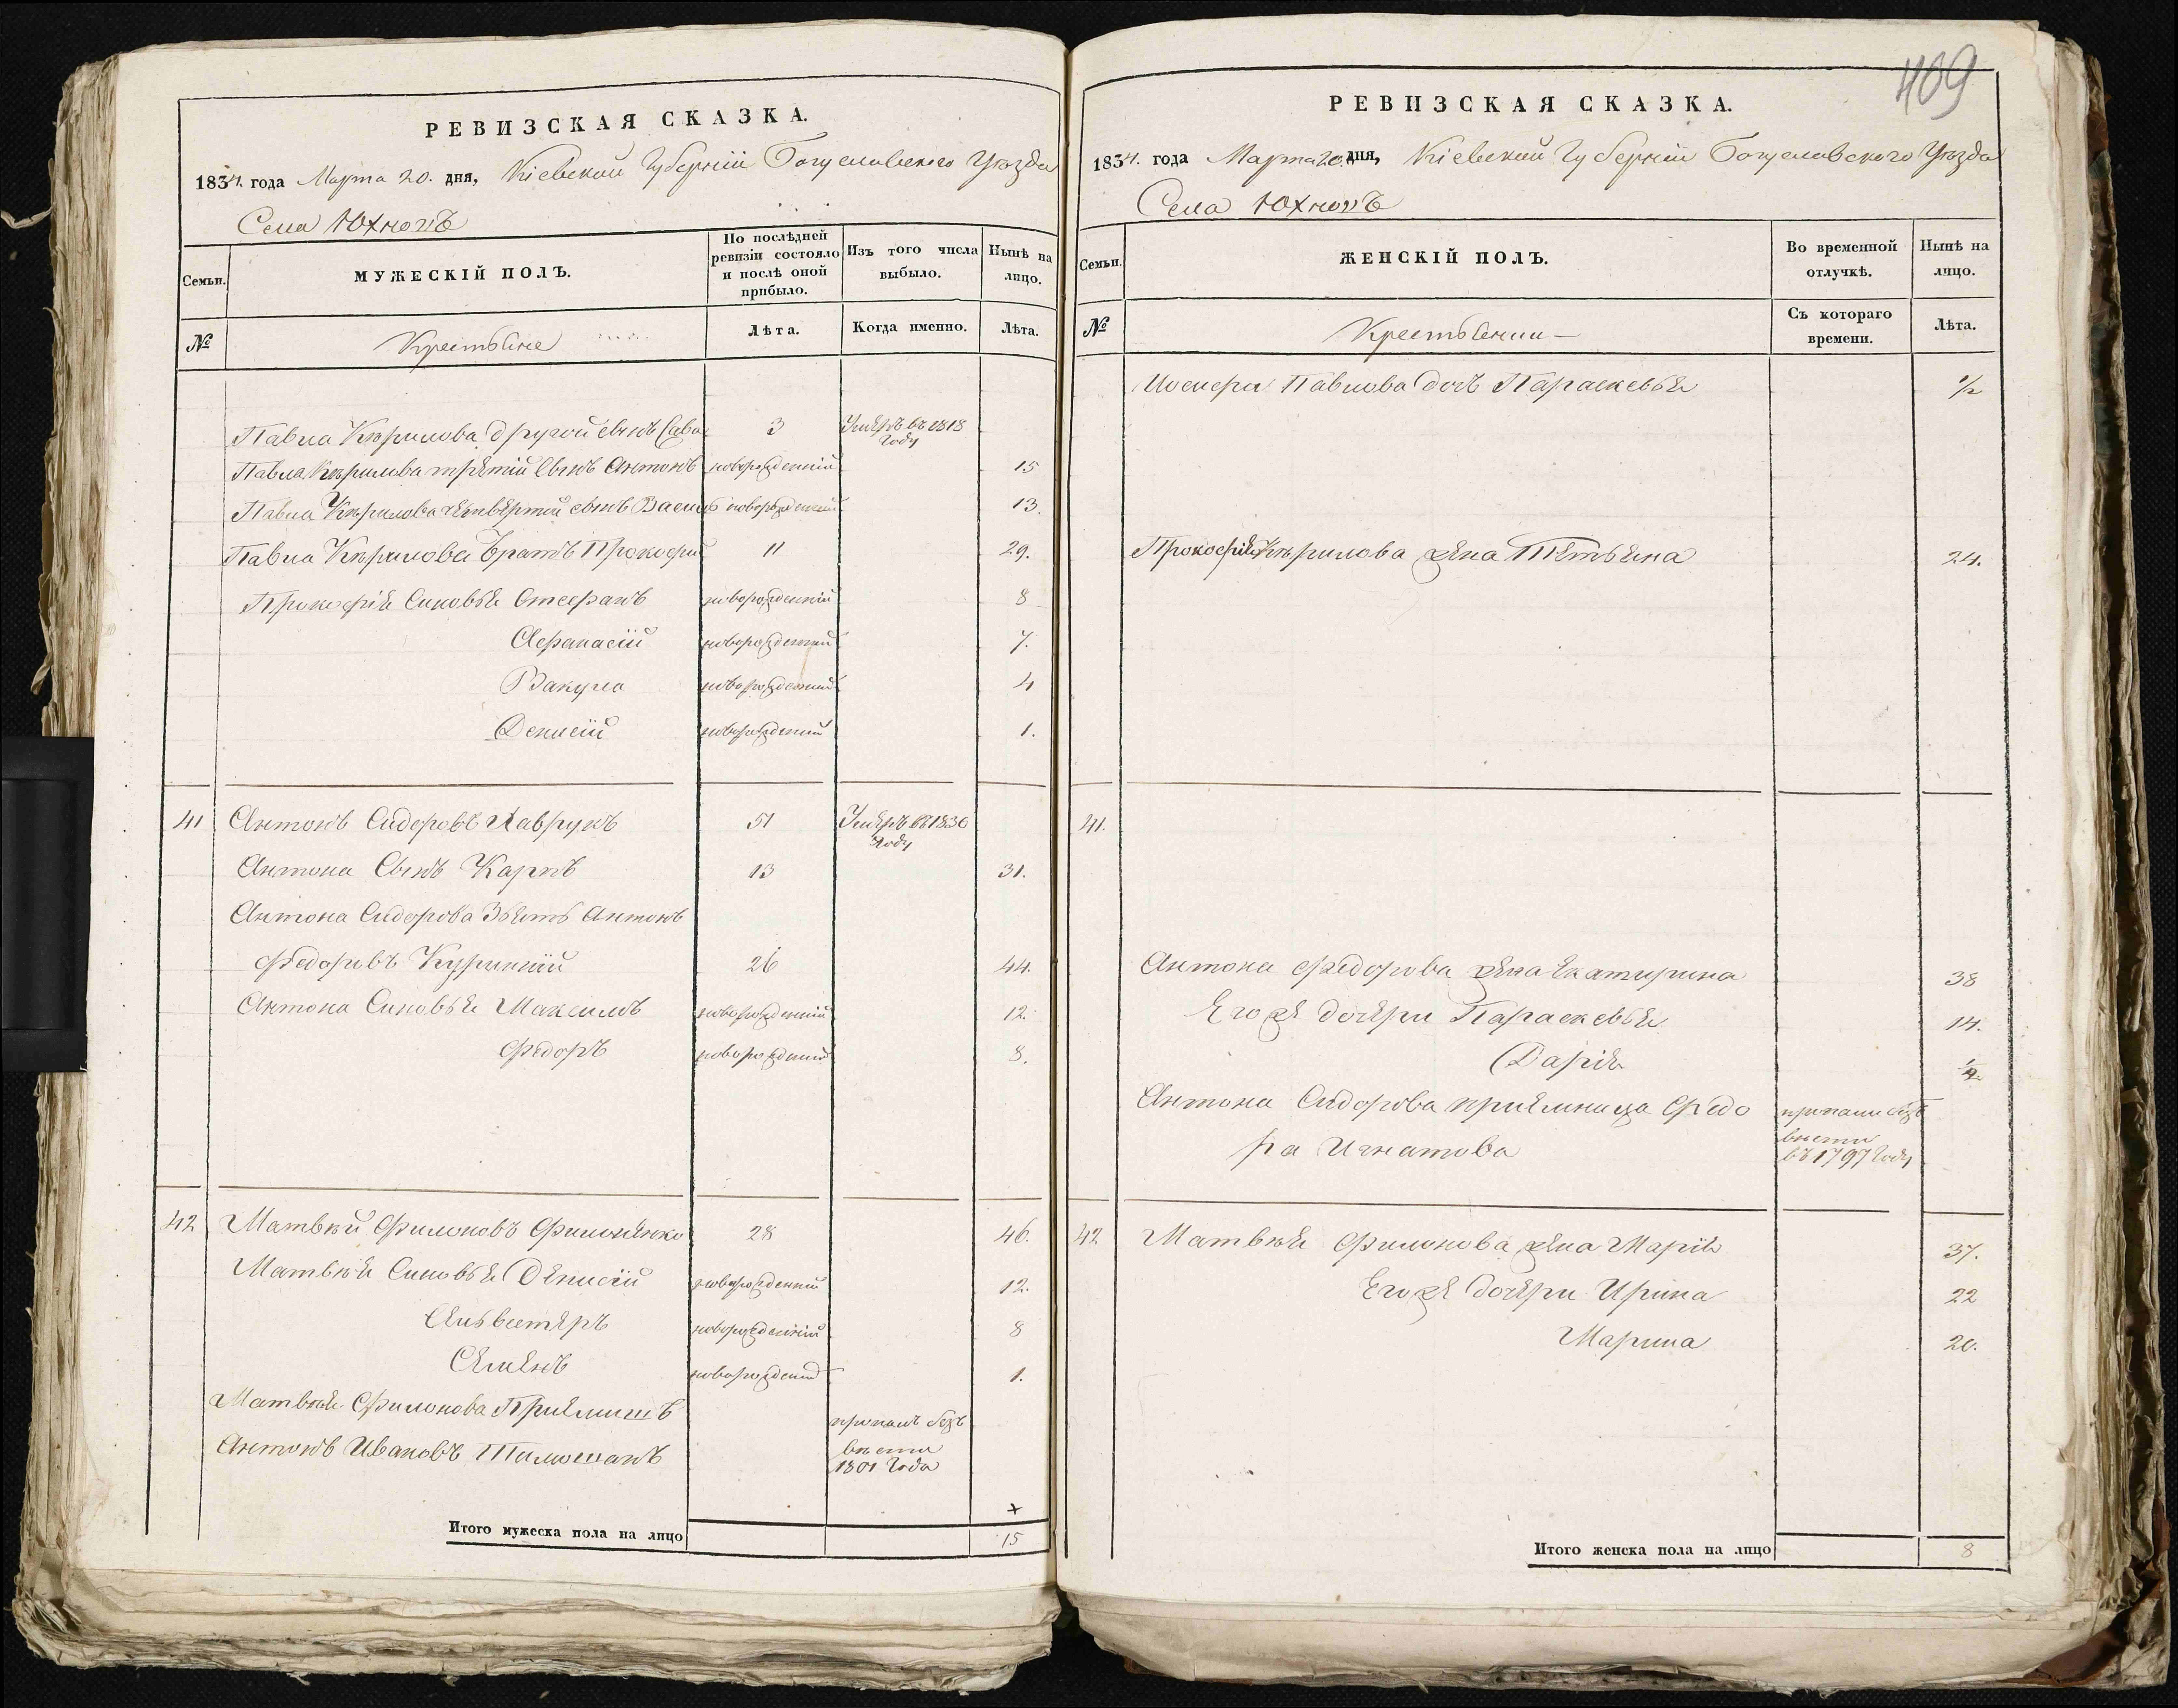 РЕВИЗСКАЯ СКАЗКА.
1834. года Марта 20. дня, Кіевской Губерніи Богуславского Уѣзда
Села Юхновъ
Семьи.
МУЖЕСКІЙ ПОЛЪ.
По послѣдней ревизіи состояло и послѣ оной прибыло.
Изъ того числа выбыло.
Нынѣ на лицо.
№
Крестьяне
Лѣта.
Когда именно.
Лѣта.
Павла Кирилова другой сынъ Сава 3 Умеръ въ 1818 году
Павла Кирилова третій сынъ Антонъ новорожденній 15
Павла Кирилова четвертій сынъ Василь новорожденній 13.
Павла Кирилова братъ Прокофій 11 29.
Прокофія Синовья Стефанъ новорожденній 8
Афанасій новорожденній 7.
Вакула новорожденній 4
Денисій новорожденній 1.
41 Антонъ Сидоровъ Гаврукъ 51 Умеръ въ 1830 году
Антона Сынъ Карпъ 13 31.
Антона Сидорова Зьять Антонъ
Федоровъ Курински 26 44.
Антона Синовья Максимъ новорожденній 12.
Федоръ новорожденній 8.
42 Матвѣй Филоновъ Филоненко 28 46.
Матвѣя Синовья Денисій новорожденній 12.
Сильвестеръ новорожденній 8
Семенъ новорожденній 1.
Матвѣя Филонова Приемишъ
Антонъ Ивановъ пропалъ безъ вѣсти 1801 года
Итого мужеска пола на лицо 15
409
РЕВИЗСКАЯ СКАЗКА.
1834. года Марта 20. дня, Кіевской Губерніи Богуславского Уѣзда
Села Юхновъ
Семьи.
ЖЕНСКІЙ ПОЛЪ.
Во временной отлучкѣ.
Нынѣ на лицо.
№
Крестьянки
Съ котораго времени.
Лѣта.
Павлова дочъ Параскевья 1/2
Прокофія Кирилова жена Тетьяна 24.
41.
Антона Федорова жена Екатирина 38
Его же дочери Параскевья 14.
Дарія
Антона Сидорова приемница Федо
ра Игнатова пропали безъ вѣсти въ 1797 году
42 Матвѣя Филонова жена Марія 37.
Его же дочери Ирина 22
Марина 20.
Итого женска пола на лицо 8